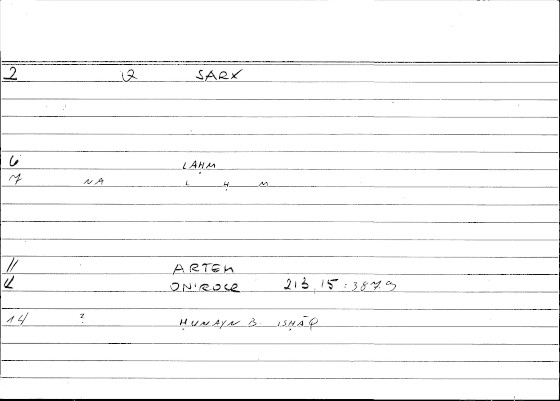 2 12 SARX
6 LAḤM
7 NA L Ḥ M
11 ARTEM
12 ONIROCR 213, 15 : 387.9
14 ? ḤUNAYN B. ISḤĀQ